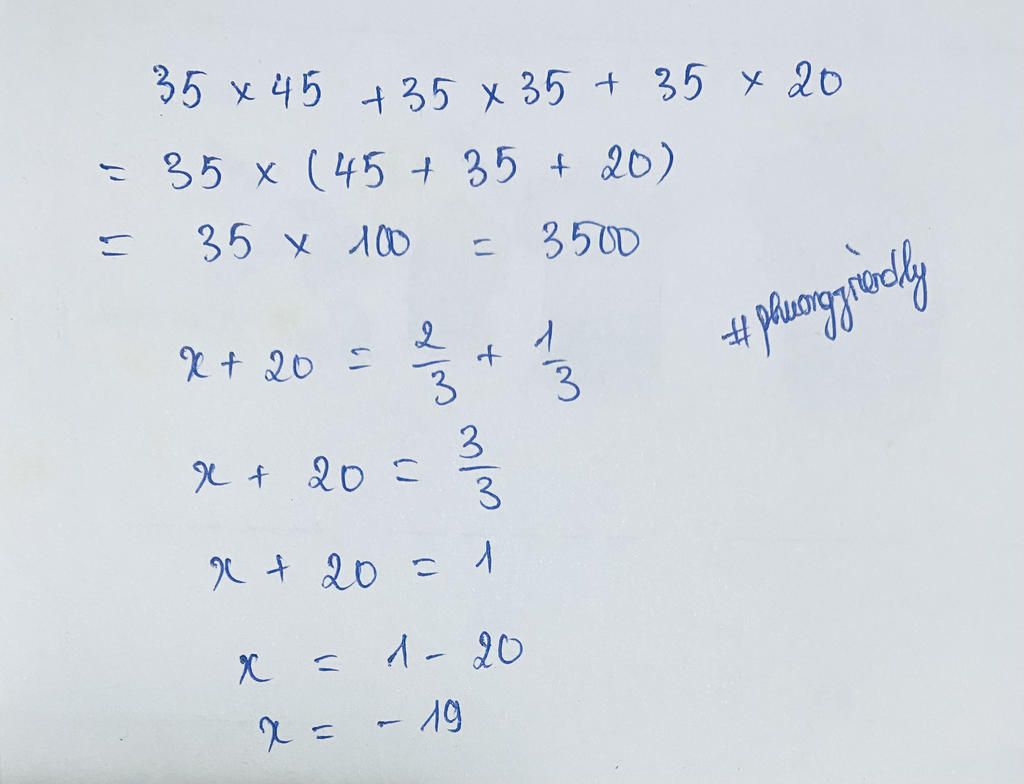 35 × 45 + 35 × 35 + 35 × 20
= 35 × (45 + 35 + 20)
= 35 × 100 = 3500
#phuongfriendly
x + 20 = 2/3 + 1/3
x + 20 = 3/3
x + 20 = 1
x = 1 - 20
x = - 19